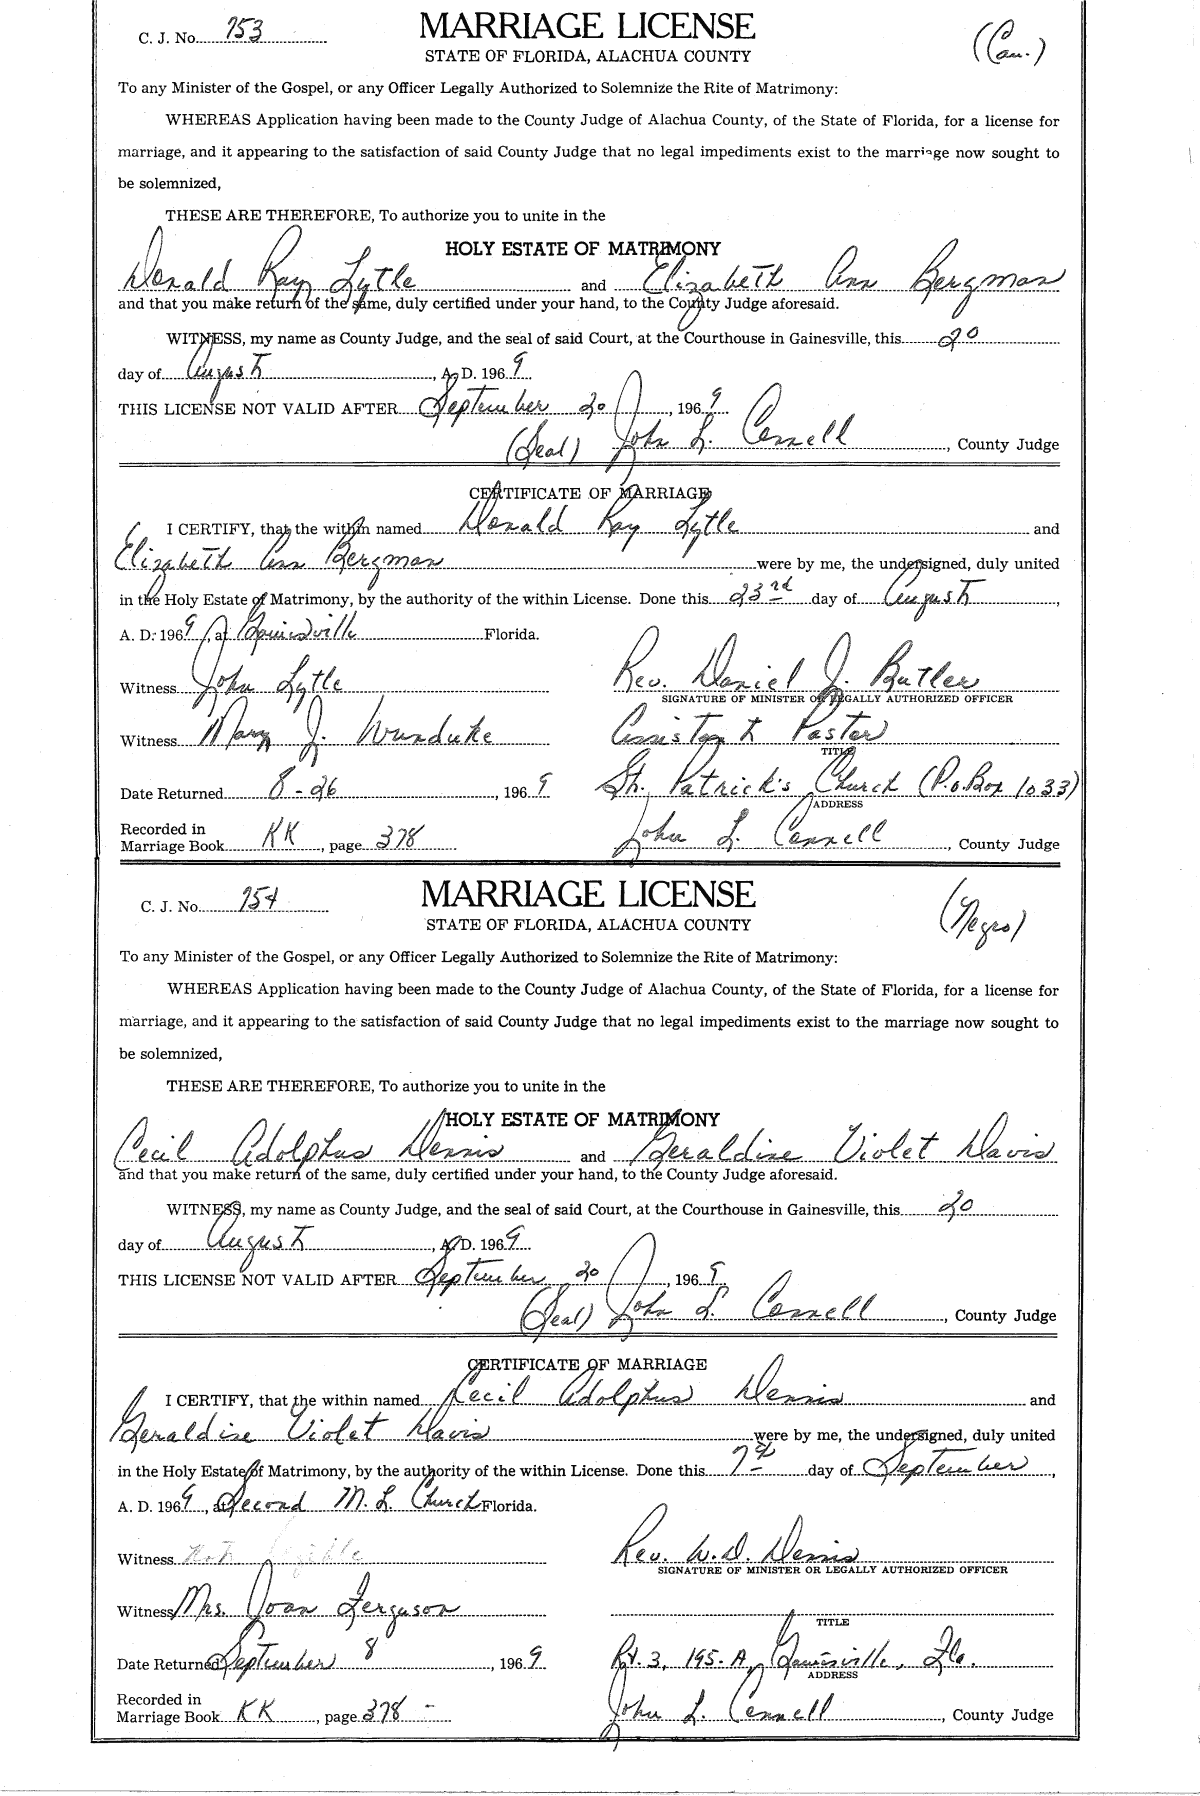 C. J. No. 753
MARRIAGE LICENSE
(Cau.)
STATE OF FLORIDA, ALACHUA COUNTY
To any Minister of the Gospel, or any Officer Legally Authorized to Solemnize the Rite of Matrimony:
WHEREAS Application having been made to the County Judge of Alachua County, of the State of Florida, for a license for
marriage, and it appearing to the satisfaction of said County Judge that no legal impediments exist to the marriage now sought to
be solemnized,
THESE ARE THEREFORE, To authorize you to unite in the
HOLY ESTATE OF MATRIMONY
Donald Ray Lytle and Elizabeth Ann Bergman
and that you make return of the same, duly certified under your hand, to the County Judge aforesaid.
WITNESS, my name as County Judge, and the seal of said Court, at the Courthouse in Gainesville, this 20
day of August, A. D. 1969
THIS LICENSE NOT VALID AFTER September 20, 1969
(Seal) John L. Connell, County Judge
CERTIFICATE OF MARRIAGE
I CERTIFY, that the within named Donald Ray Lytle and
Elizabeth Ann Bergman were by me, the undersigned, duly united
in the Holy Estate of Matrimony, by the authority of the within License. Done this 23rd day of August,
A. D. 1969, at Gainesville Florida.
Witness John Lytle Rev. Daniel J. Butler
SIGNATURE OF MINISTER OR LEGALLY AUTHORIZED OFFICER
Witness Mary J. Wunduke Assistant Pastor
TITLE
Date Returned 8-26, 1969 St. Patrick's Church (P.O. Box 1033)
ADDRESS
Recorded in
Marriage Book KK, page 378 John L. Connell, County Judge
C. J. No. 754
MARRIAGE LICENSE
(Negro)
STATE OF FLORIDA, ALACHUA COUNTY
To any Minister of the Gospel, or any Officer Legally Authorized to Solemnize the Rite of Matrimony:
WHEREAS Application having been made to the County Judge of Alachua County, of the State of Florida, for a license for
marriage, and it appearing to the satisfaction of said County Judge that no legal impediments exist to the marriage now sought to
be solemnized,
THESE ARE THEREFORE, To authorize you to unite in the
HOLY ESTATE OF MATRIMONY
Cecil Adolphus Dennis and Geraldine Violet Davis
and that you make return of the same, duly certified under your hand, to the County Judge aforesaid.
WITNESS, my name as County Judge, and the seal of said Court, at the Courthouse in Gainesville, this 20
day of August, A. D. 1969
THIS LICENSE NOT VALID AFTER September 20, 1969
(Seal) John L. Connell, County Judge
CERTIFICATE OF MARRIAGE
I CERTIFY, that the within named Cecil Adolphus Dennis and
Geraldine Violet Davis were by me, the undersigned, duly united
in the Holy Estate of Matrimony, by the authority of the within License. Done this 7th day of September,
A. D. 1969, at Second M. L. Church Florida.
Witness Not legible Rev. W. D. Dennis
SIGNATURE OF MINISTER OR LEGALLY AUTHORIZED OFFICER
Witness Mrs. Joan Ferguson
TITLE
Date Returned September 8, 1969 Rt. 3, 195-A, Gainesville, Fla.
ADDRESS
Recorded in
Marriage Book KK, page 378 - John L. Connell, County Judge